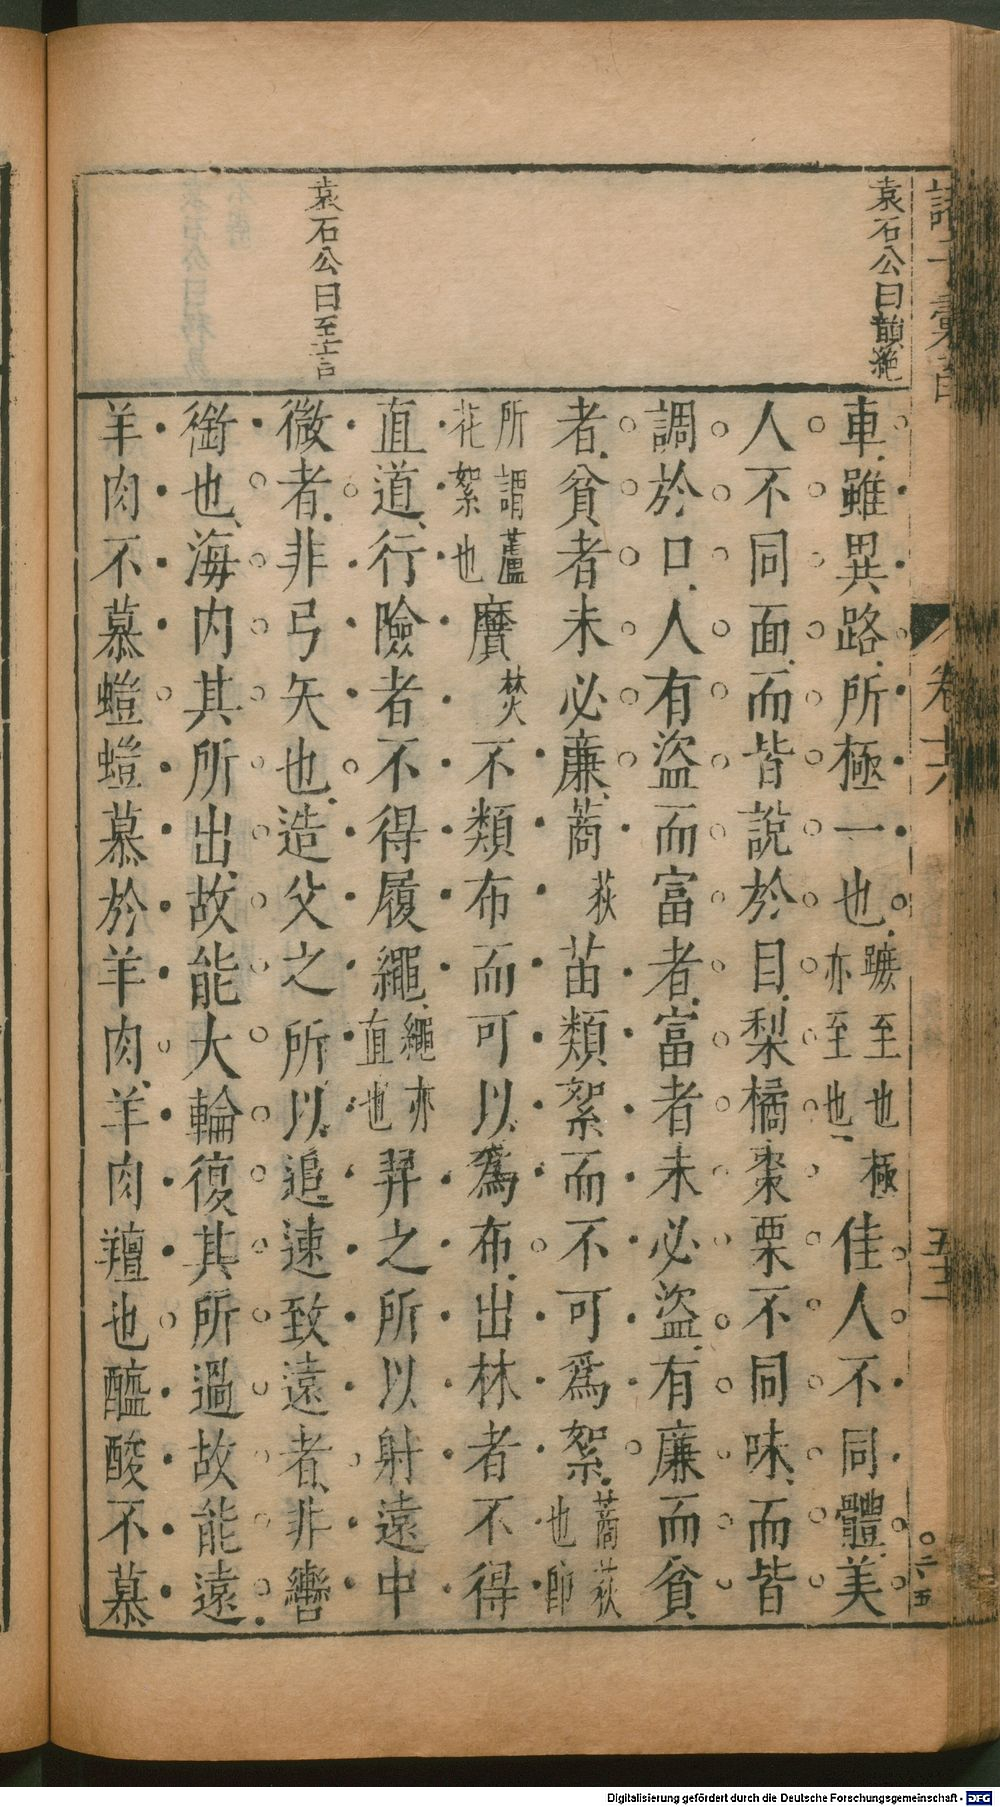 諸子彙函
卷十六
五十二
○二五
袁石公曰韻絶
袁石公曰至言
車雖異路所極一也蹠至也極亦至也佳人不同體美
人不同面而皆說於目梨橘棗栗不同味而皆
調於口人有盜而富者富者未必盜有廉而貧
者貧者未必廉蔐荻苗類絮而不可爲絮蔐荻也郎
所謂蘆花絮也黂焚不類布而可以爲布出林者不得
直道行險者不得履繩繩亦直也羿之所以射遠中
微者非弓矢也造父之所以追速致遠者非轡
銜也海内其所出故能大輪復其所過故能遠
羊肉不慕螘螘慕於羊肉羊肉羶也醯酸不慕
Digitalisierung gefördert durch die Deutsche Forschungsgemeinschaft - DFG